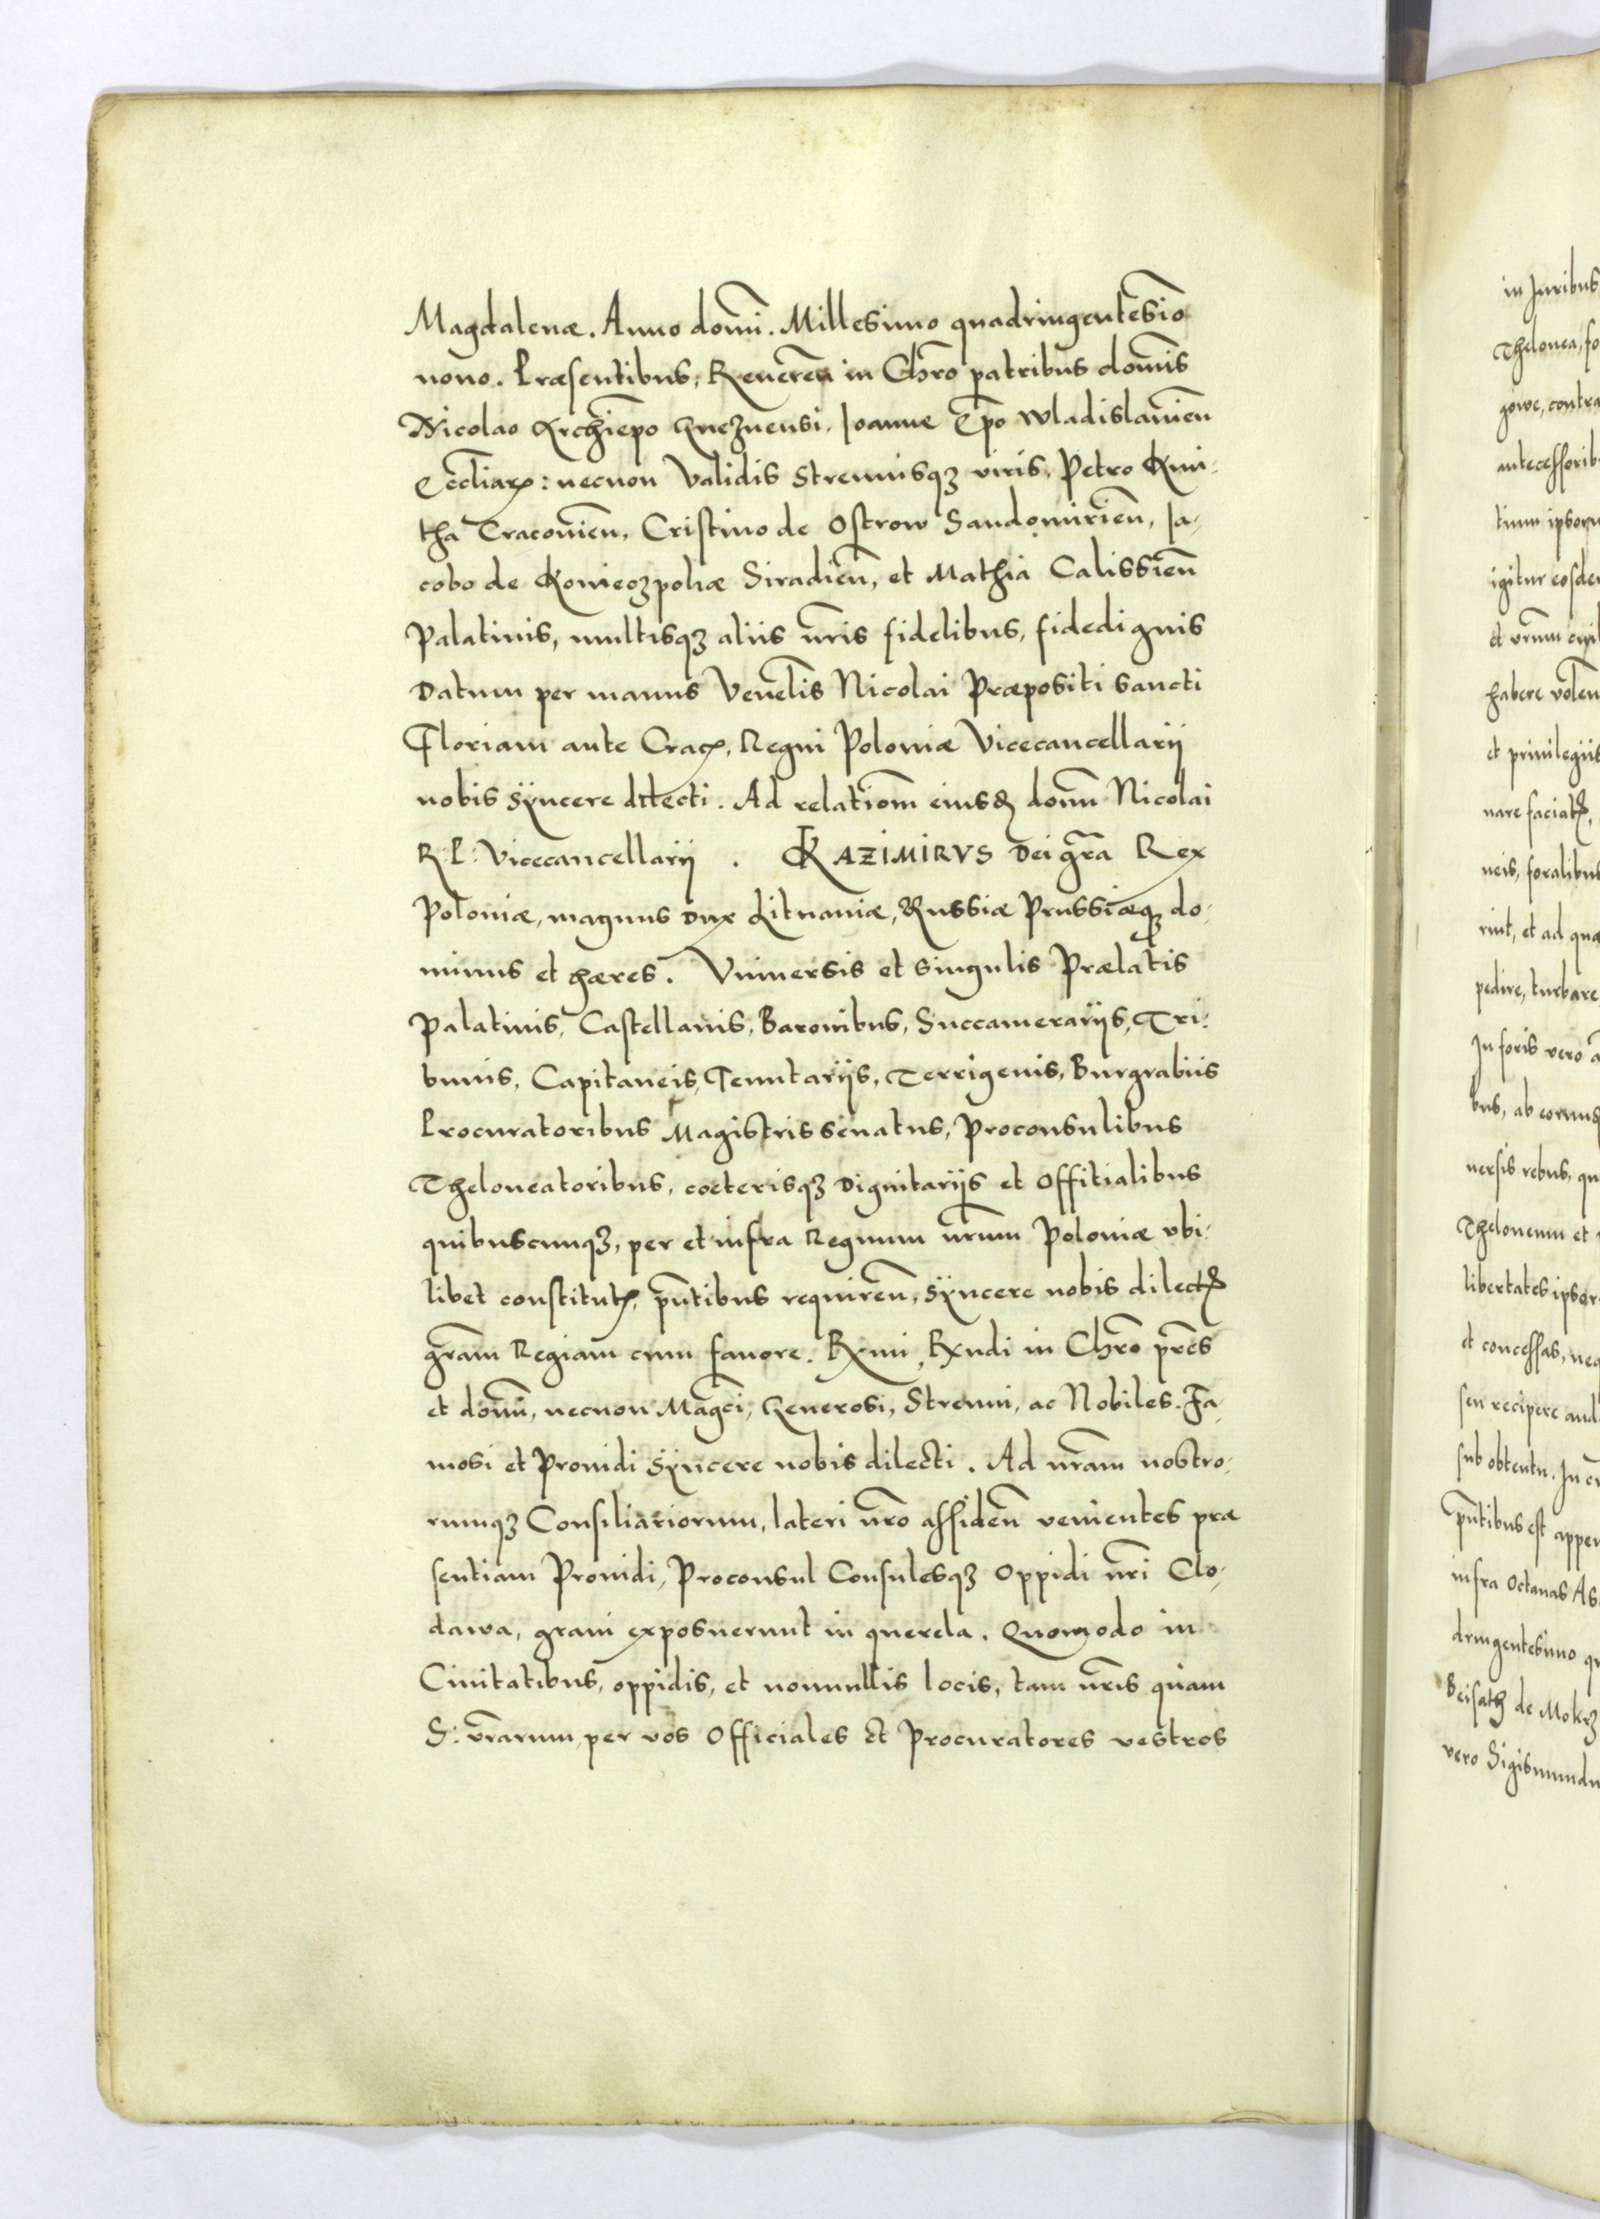 Magdalenæ. Anno domī. Millesimo quadringentesīo
nono. Præsentibus, Reuerēn in Chro patribus domīs
Nicolao Archiēpo Gneznensi, Joanne Epō Wladislauien̄
Eccliarꝝ: necnon Validis Strenuisqꝫ viris, Petro Kmi-
tha Cracouien̄, Cristino de Ostrow Sandomirien̄, Ja-
cobo de Konieczpoliæ Siradien̄, et Mathia Calissien̄
Palatinis, multisqꝫ aliis nr̄is fidelibus, fidedignis
Datum per manus Venelīs Nicolai Præpositi Sancti
Floriani ante Crac, Regni Poloniæ Vicecancellarij
nobis Syncere dilecti. Ad relatiom̄ eiusd domn̄ Nicolai
R. P: Vicecancellarij . KAZIMIRVS Dei gr̄a Rex
Poloniæ, magnus Dux Lituaniæ, Russiæ Prussiæqꝫ do-
minus et hæres. Vniuersis et singulis Prælatis
Palatinis, Castellanis, Baronibus, Succamerarijs, Tri-
bunis, Capitaneis, Tenutarijs, Terrigenis, Burgrabiis
Procuratoribus Magistris senatus, Proconsulibus
Theloneatoribus, cœterisqꝫ Dignitarijs et Offitialibus
quibuscunqꝫ, per et infra Regnum nr̄um Poloniæ vbi-
libet constitut, pn̄tibus requiren̄, Syncere nobis dilect
gr̄am Regiam cum fauore. Rxmi, Rxndi in Chrō prēs
et domī, necnon Magci, Generosi, Strenui, ac Nobiles. Fa-
mosi et Prouidi Syncere nobis dilecti. Ad nr̄am nostro-
rumqꝫ Consiliariorum, lateri nr̄o assiden̄ venientes præ
sentiam Prouidi, Proconsul Consulesqꝫ Oppidi nr̄i Clo-
dawa, graui exposuerunt in querela. Quomodo in
Ciuitatibus, oppidis, et nonnullis locis, tam nr̄is quam
S: vr̄arum, per vos Officiales et Procuratores vestros
in Juribus
Thelonea, fo
gowe, contra
antecessorib
tium ipsoru
igitur eosde
et vr̄um cuil
habere volen
et priuilegiis
nare faciat,
neis, foralibus
rint, et ad quæ
pedire, turbare
In foris vero a
bus, ab eorum
uersis rebus, qu
Theloneum et
libertates ipsor
et concessas, neq
seu recipere aud
sub obtentu. In
pn̄tibus est appen
infra Octauas As
dringentesimo qu
Beisath de Mokrz
vero Sigismundu